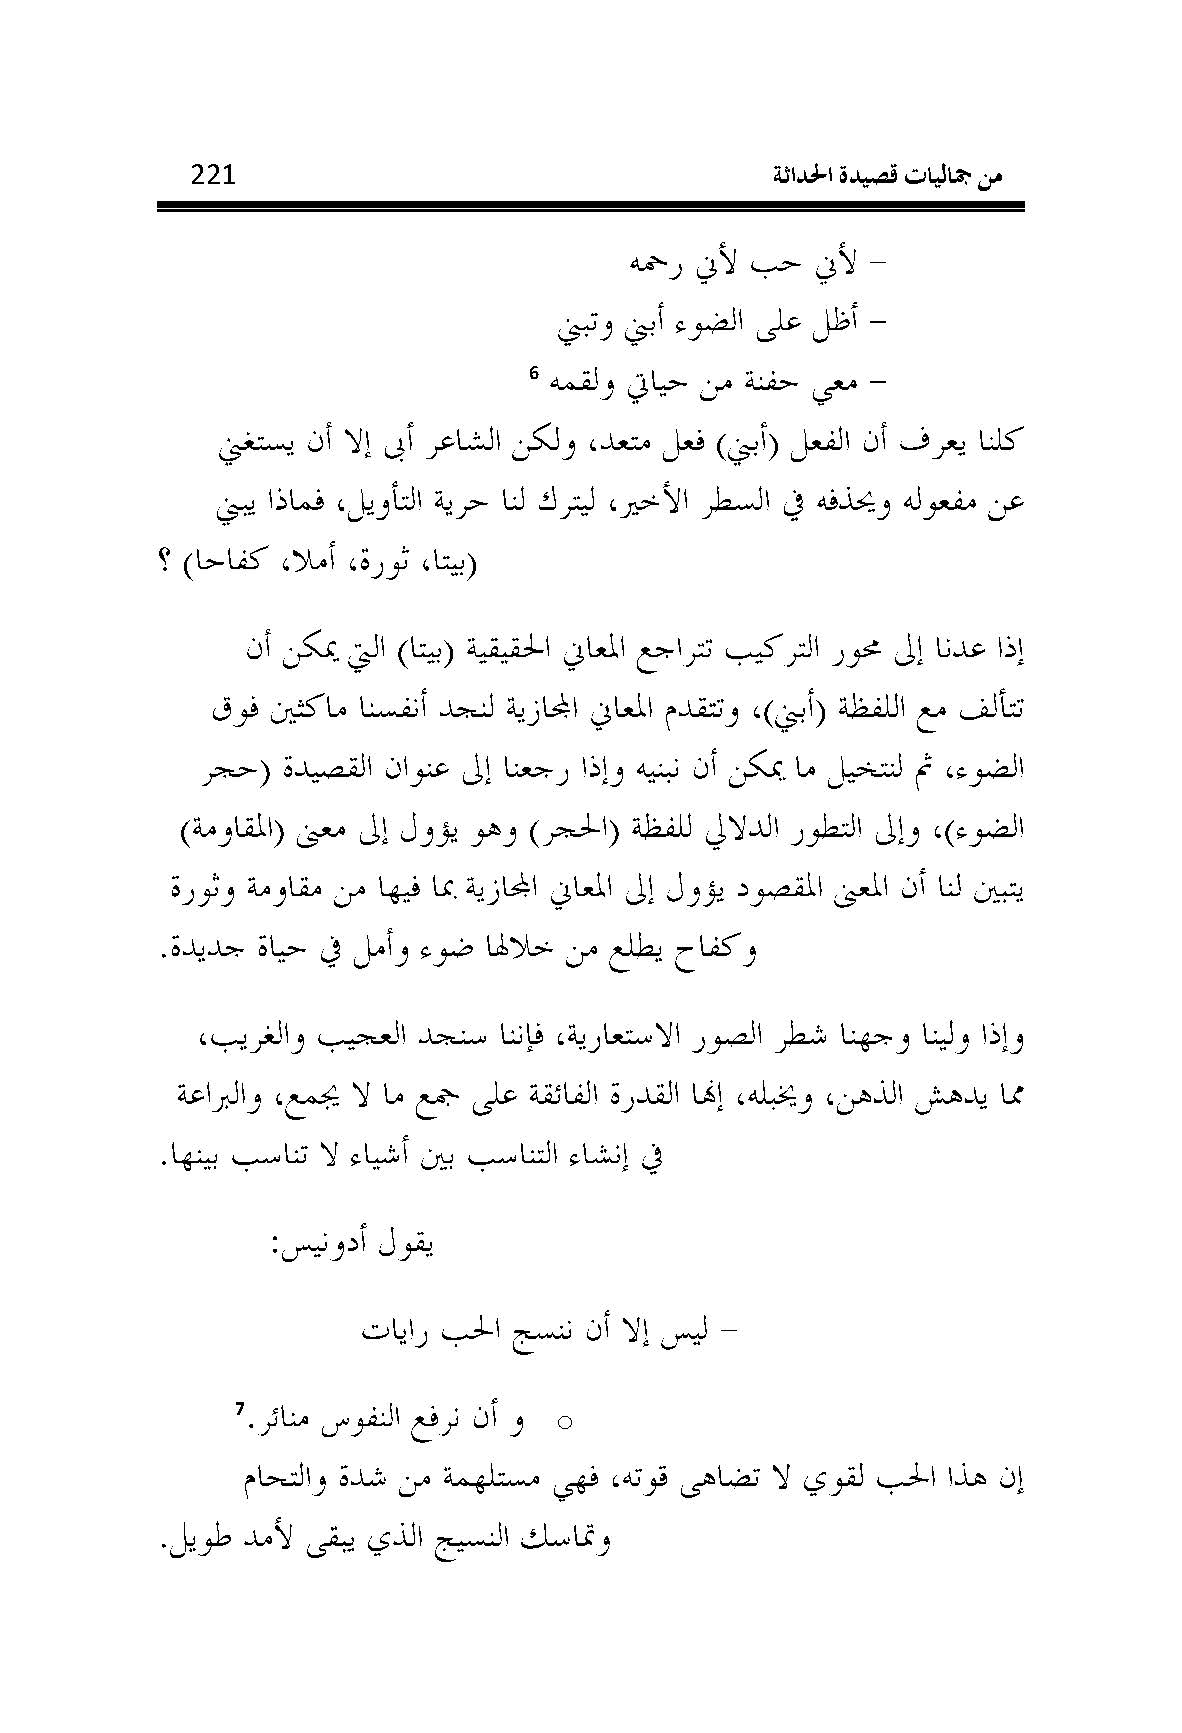 من جماليات قصيدة الحداثة 221
- لأني حب لأني رحمه
- أظل على الضوء أبني وتبني
- معي حفنة من حياتي ولقمه 6
كلنا يعرف أن الفعل (أبني) فعل متعد، ولكن الشاعر أبى إلا أن يستغني
عن مفعوله ويحذفه في السطر الأخير، ليترك لنا حرية التأويل، فماذا يبني
(بيتا، ثورة، أملا، كفاحا) ؟
إذا عدنا إلى محور التركيب تتراجع المعاني الحقيقية (بيتا) التي يمكن أن
تتألف مع اللفظة (أبني)، وتتقدم المعاني المجازية لنجد أنفسنا ماكثين فوق
الضوء، ثم لنتخيل ما يمكن أن نبنيه وإذا رجعنا إلى عنوان القصيدة (حجر
الضوء)، وإلى التطور الدلالي للفظة (الحجر) وهو يؤول إلى معنى (المقاومة)
يتبين لنا أن المعنى المقصود يؤول إلى المعاني المجازية بما فيها من مقاومة وثورة
وكفاح يطلع من خلالها ضوء وأمل في حياة جديدة.
وإذا ولينا وجهنا شطر الصور الاستعارية، فإننا سنجد العجيب والغريب،
مما يدهش الذهن، ويخبله، إنها القدرة الفائقة على جمع ما لا يجمع، والبراعة
في إنشاء التناسب بين أشياء لا تناسب بينها.
يقول أدونيس:
- ليس إلا أن ننسج الحب رايات
o و أن نرفع النفوس منائر.7
إن هذا الحب لقوي لا تضاهى قوته، فهي مستلهمة من شدة والتحام
وتماسك النسيج الذي يبقى لأمد طويل.